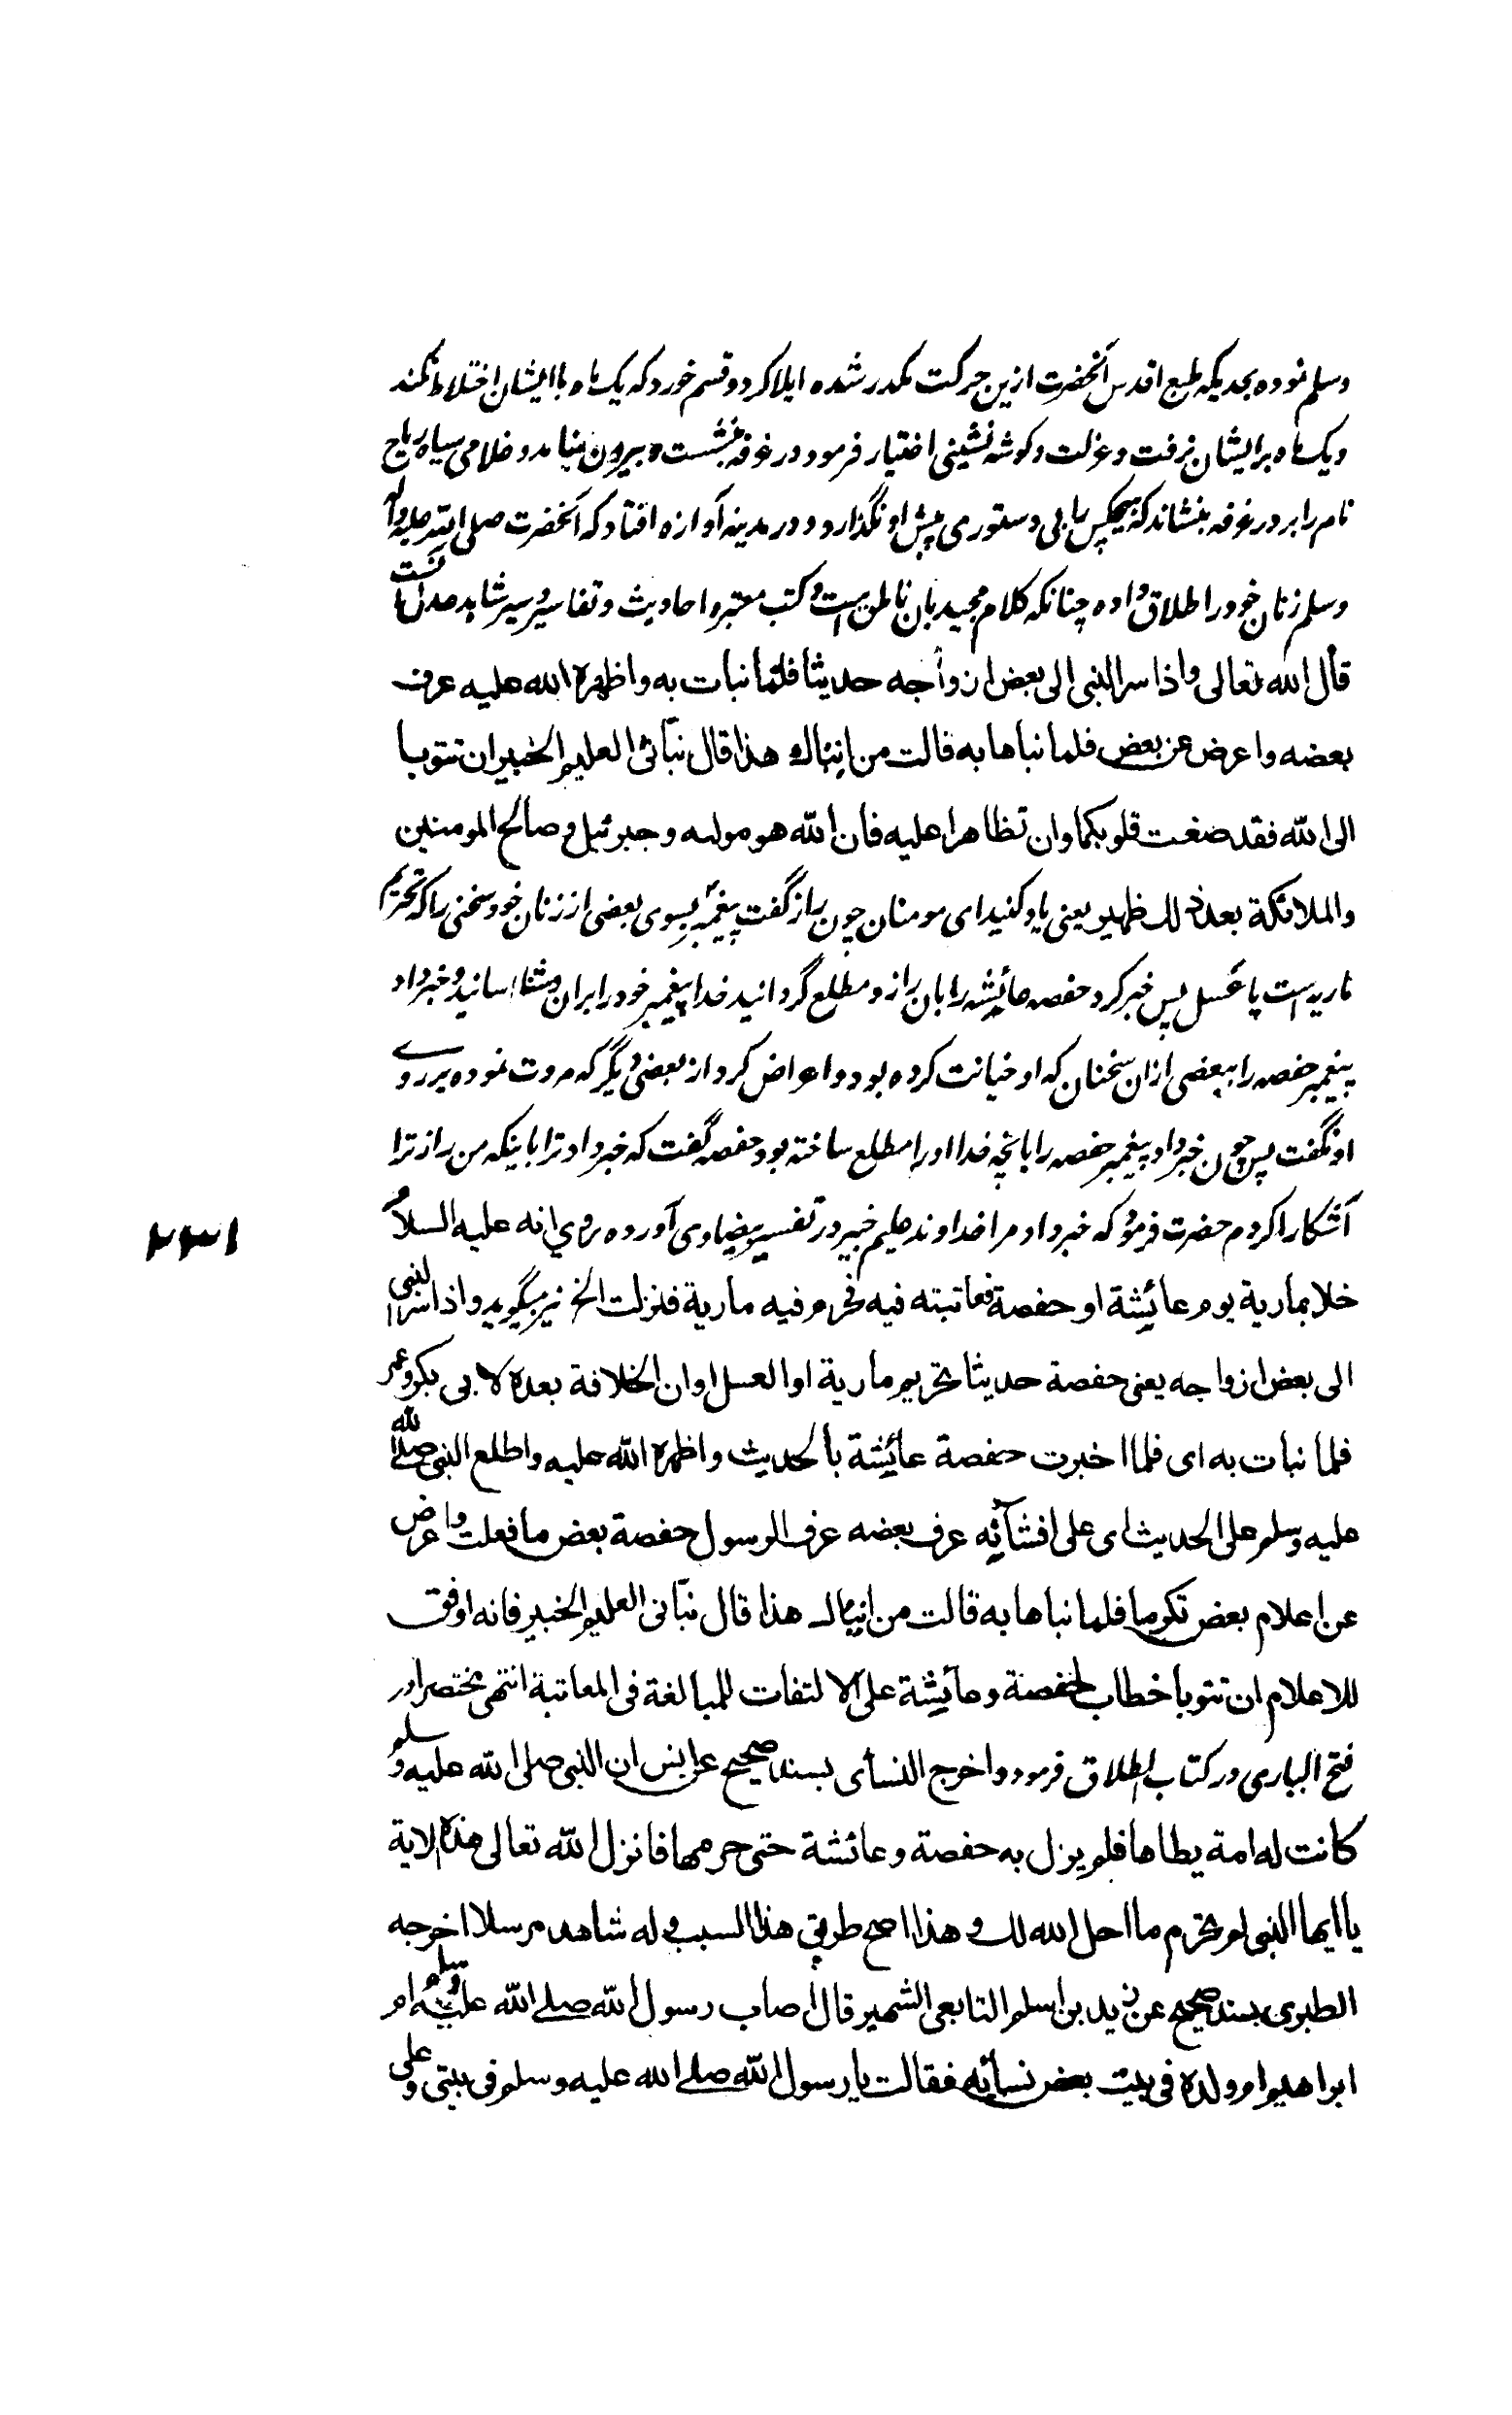 وسلم نموده بحدیکه طبع اقدس آنحضرت ازین حرکت مکدر شده ایلا کرد و قسم خورد که یک ماه با ایشان اختلاط نکند
و یک ماه بر ایشان نرفت و عزلت و گوشه نشینی اختیار فرمود و در غرفه بنشست و بیرون نیامد و غلامی سیاه رباح
نام را بر در غرفه بنشاند که هیچکس را بی دستوری پیش او نگذارد و در مدینه آوازه افتاد که آنحضرت صلی الله علیه وآله
وسلم زنان خود را طلاق داده چنانکه کلام مجید بان ناطق است و کتب معتبره احادیث و تفاسیر و سیر شاهد صدق آنست
قال الله تعالی واذا سر النبی الی بعض ازواجه حدیثا فلما نبات به واظهره الله علیه عرف
بعضه واعرض عن بعض فلما نباها به قالت من انبئاك هذا قال نبّائی العلیم الخبیر ان تتوبا
الی الله فقد صغت قلوبکما وان تظاهرا علیه فان الله هو مولىه وجبرئیل وصالح المومنین
والملائکة بعد ذلك ظهیر یعنی یاد کنید ای مومنان چون راز گفت پیغمبر بسوی بعضی از زنان خود سخنی را که تحریم
ماریه است یا عسل پس خبر کرد حفصه عائشه را بان راز و مطلع گردانید خدا پیغمبر خود را بران و شناسانید و خبر داد
پیغمبر حفصه را ببعضی ازان سخنان که او خیانت کرده بود و اعراض کرد از بعضی دیگر که مروت نموده بر روے
او نگفت پس چون خبر داد پیغمبر حفصه را بانچه خدا او را مطلع ساخته بود حفصه گفت که خبر داد ترا باینکه من راز ترا
آشکارا کردم حضرت فرمود که خبر داد مرا خداوند علیم خبیر در تفسیر بیضاوی آورده روي انه علیه السلام
۲۳۱
خلا بماریة یوم عائشة او حفصة فعاتبته فیه فحرم فیه ماریة فنزلت الخ نیز میگوید واذا سر النبی
الی بعض ازواجه یعنی حفصة حدیثا تحریم ماریة او العسل او ان الخلافة بعده لابی بکر وعمر
فلما نبات به ای فلما اخبرت حفصة عائشة بالحدیث واظهره الله علیه واطلع النبی صلی الله
علیه وسلم علی الحدیث ای علی افشائه عرف بعضه عرف الرسول حفصة بعض ما فعلت واعرض
عن اعلام بعض تکرما فلما نباها به قالت من انبئاك هذا قال نبّانی العلیم الخبیر فانه اوفق
للاعلام ان تتوبا خطاب لحفصة وعائشة علی الالتفات للمبالغة فی المعاتبة انتهی مختصرا در
فتح الباری در کتاب الطلاق فرموده واخرج النسائی بسند صحیح عن انس ان النبی صلی الله علیه وسلم
کانت له امة یطاها فلم یزل به حفصة وعائشة حتی حرمها فانزل الله تعالی هذه الایة
یا ایها النبی لم تحرم ما احل الله لك وهذا اصح طرق هذا السبب وله شاهد مرسلا اخرجه
الطبری بسند صحیح عن زید بن اسلم التابعی الشهیر قال اصاب رسول الله صلے الله علیه وسلم ام
ابراهیم ام ولده فی بیت بعض نسائه فقالت یا رسول الله صلے الله علیه وسلم فی بیتی وعلی